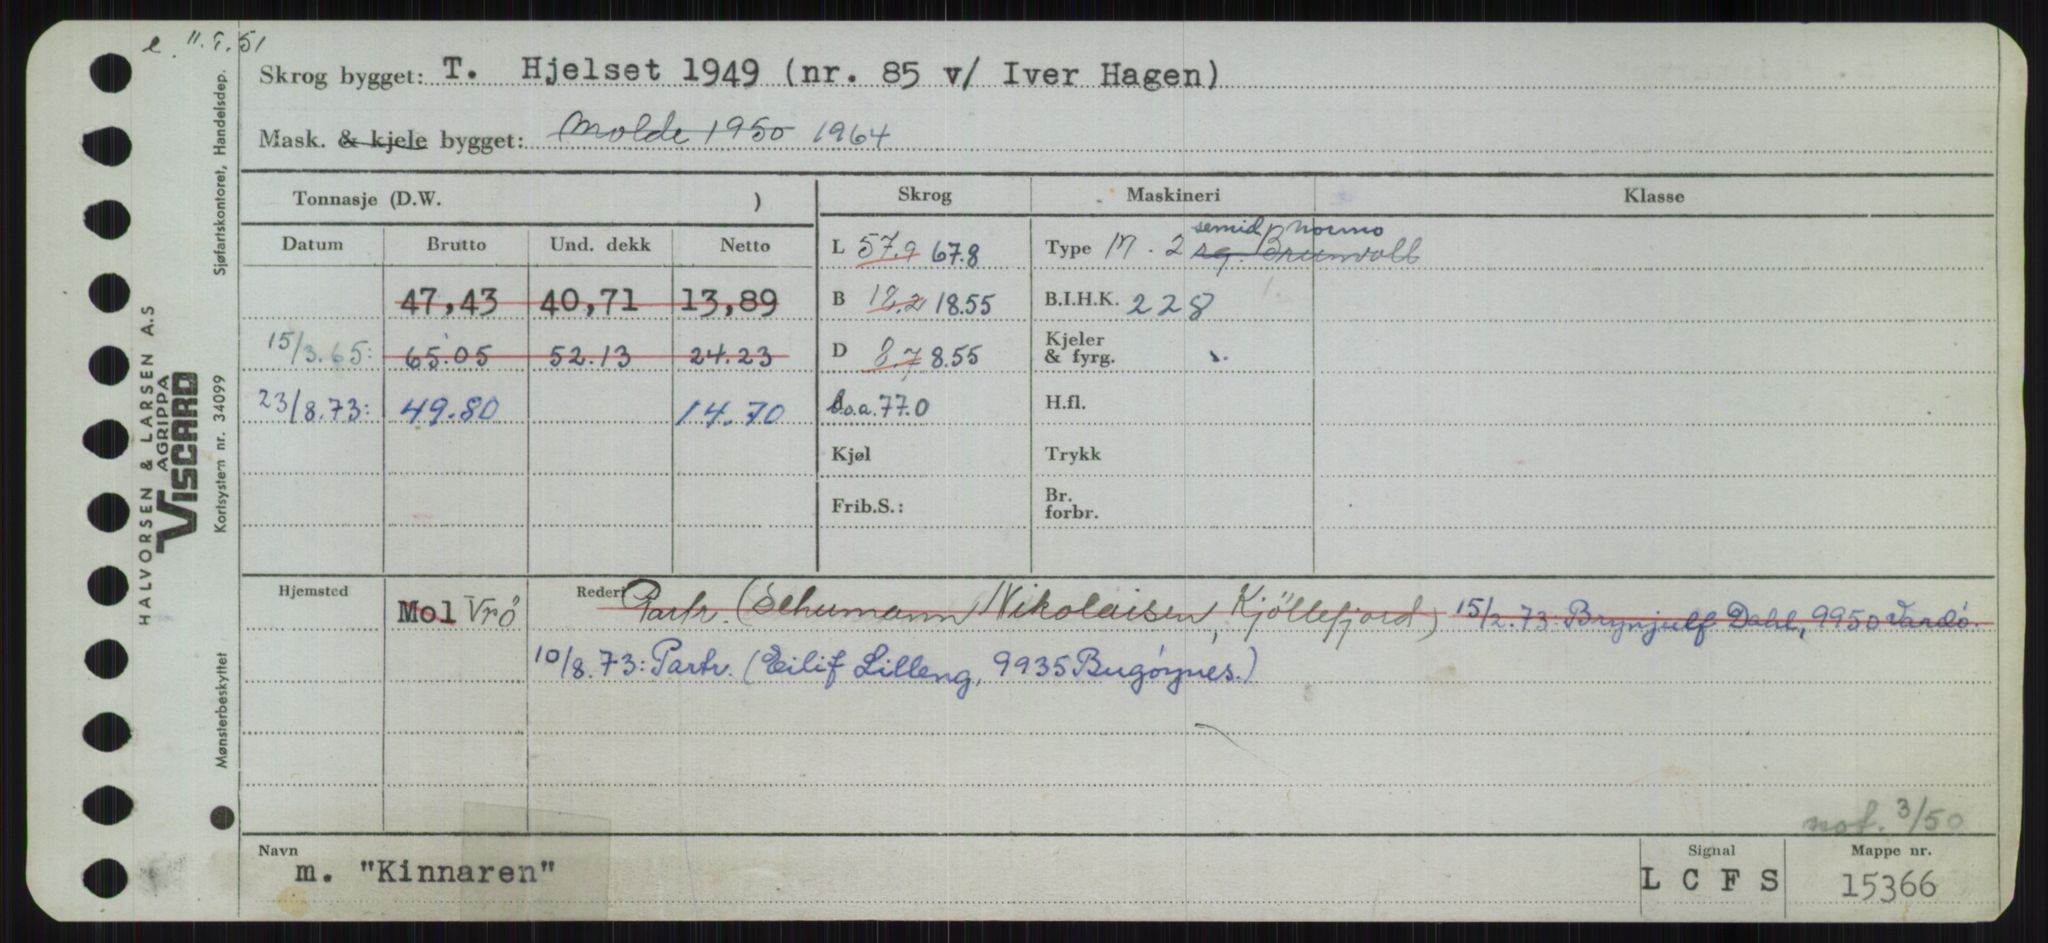 e 11.5.51
Skrog bygget: T. Hjelset 1949 (nr. 85 v/ Iver Hagen)
Mask. & kjele bygget: Molde 1950 1964
Tonnasje (D.W. )
Skrog
Maskineri
Klasse
Datum Brutto Und. dekk Netto
L 57.9 67.8
Type M. 2 rg. Brunvoll semid. Normo
47,43 40,71 13,89
B 18.2 18.55
B.I.H.K. 228
15/3.65: 65.05 52.13 24.23
D 8.7 8.55
Kjeler
& fyrg.
23/8.73: 49.80 14.70
l.o.a. 77.0
H.fl.
Kjøl
Trykk
Frib.S.:
Br.
forbr.
Hjemsted
Mol Vrö
Rederi Partr. (Schumann Nikolaisen, Kjöllefjord) 15/2.73: Brynjulf Dahl, 9950 Vardö.
10/8.73: Partr. (Eilif Lilleng, 9935 Bugöynes.)
not. 3/50
Navn
m. "Kinnaren"
Signal
L C F S
Mappe nr.
15366
HALVORSEN & LARSEN A.S
AGRIPPA
VISCARD
Sjøfartskontoret, Handelsdep.
Kortsystem nr. 34099
Mønsterbeskyttet